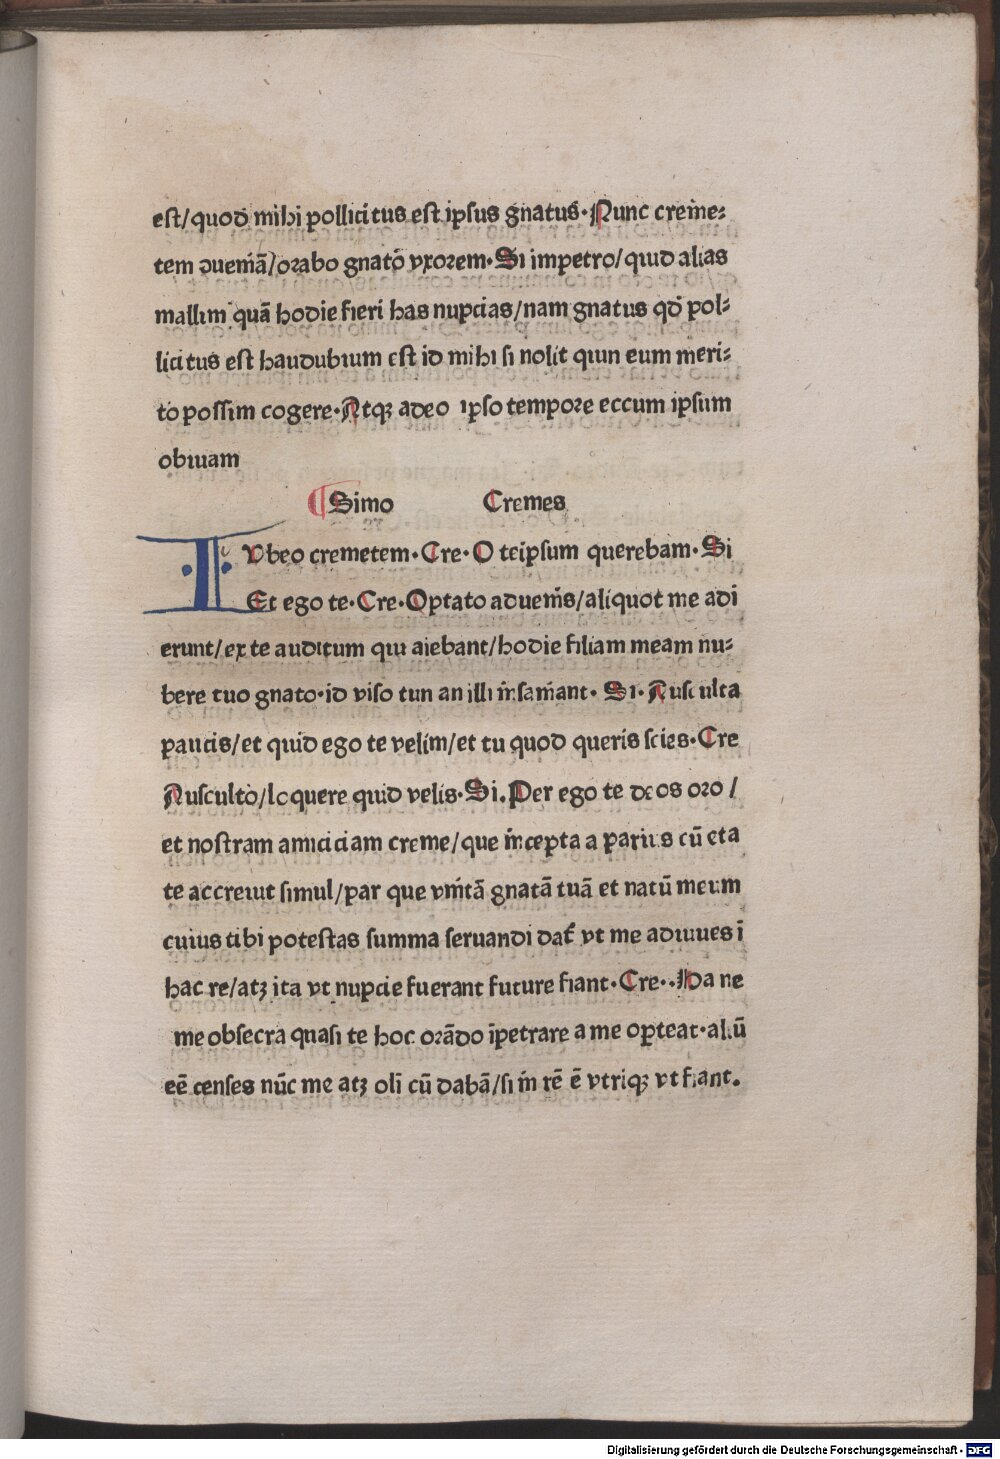 est/quod mihi pollicitus est ipsus gnatus·Nunc creme⸗
tem ɔuemā/orabo gnatō vxorem·Si impetro/quid alias
mallim quā hodie fieri has nupcias/nam gnatus qđ pol⸗
licitus est haudubium est id mihi si nolit quin eum meri⸗
to possim cogere·Atqꝫ adeo ipso tempore eccum ipsum
obuiam
¶Simo Cremes
IVbeo cremetem·Cre·O teipsum querebam·Si
Et ego te·Cre·Optato aduem̄s/aliquot me adi
erunt/ex te auditum qui aiebant/hodie filiam meam nu⸗
bere tuo gnato·id viso tun an illi m̄sam̄ant·Si·Ausculta
paucis/et quid ego te velim/et tu quod queris scies·Cre
Ausculto/loquere quid velis·Si.Per ego te deos oro/
et nostram amiciciam creme/que m̄cepta a paruis cū eta
te accreuit simul/par que vm̄tā gnatā tuā et natū meum
cuius tibi potestas summa seruandi dat̄ vt me adiuues ī
hac re/atꝫ ita vt nupcie fuerant future fiant·Cre··Ha ne
me obsecra quasi te hoc orādo īpetrare a me oꝑteat·aliū
eē censes nūc me atꝫ oli̅ cū dabā/si m̄ rē ē vtriqꝫ vt fiant.
Digitalisierung gefördert durch die Deutsche Forschungsgemeinschaft - DFG